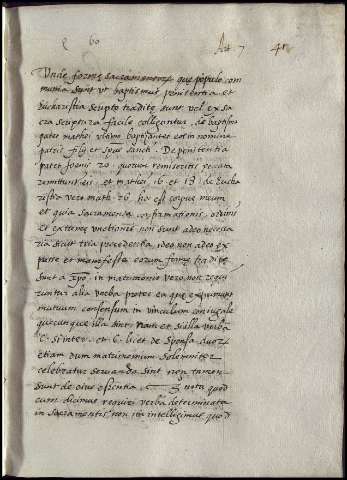 60 Art. 7 41
Unde formę sacramentorum que populo com
munia sunt ut baptismus penitentia et
Eucharistia scripto traditę sunt vel ex sa
cra scriptura facile colliguntur, de baptismo
patet mathei ultimo baptizantes eos in nomine
patris filij et spūs sancti. De penitentia
patet Joanis 20 quorum remiseritis peccata
remittuntur eis et mathei 16 et 18 de Eucha
ristia vero math. 26 hoc est corpus meum
et quia sacramenta confirmationis ordinis
et extreme unctionis non sunt adeo necessa
ria sicut tria precedentia, ideo non adeo ex
presse et manifeste eorum formę traditę
sunt a xpo. in matrimonio vero non requi
runtur alia verba preter ea que exprimunt
mutuum consensum in vinculum coniugale
quecunque illa sint nam et si alia verba
C. si inter et C. licet de sponsa duor.
etiam dum matrimonium solemniter
celebratur servanda sint non tamen
sunt de eius essentia nota quod
cum dicimus requiri verba determinata
in sacramentis non ita intelligimus quod